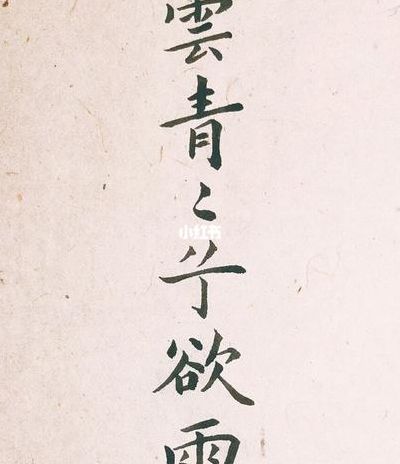 雲青〻兮欲雨
小红书